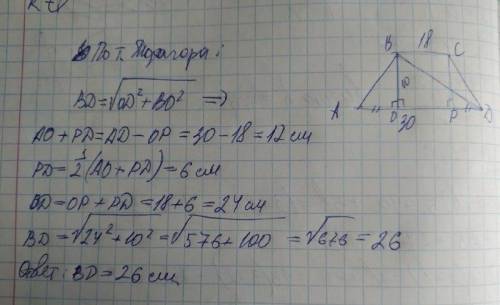 По т. Пифагора:
BD=√OD²+BO² ⇒
AO+PD=AD−OP=30−18=12 см
PD=½(AO+PD)=6 см
BD=OP+PD=18+6=24 см
BD=√24²+10²=√576+100=√676=26
Ответ: BD=26 см
B 18 C
10
A O 30 P D